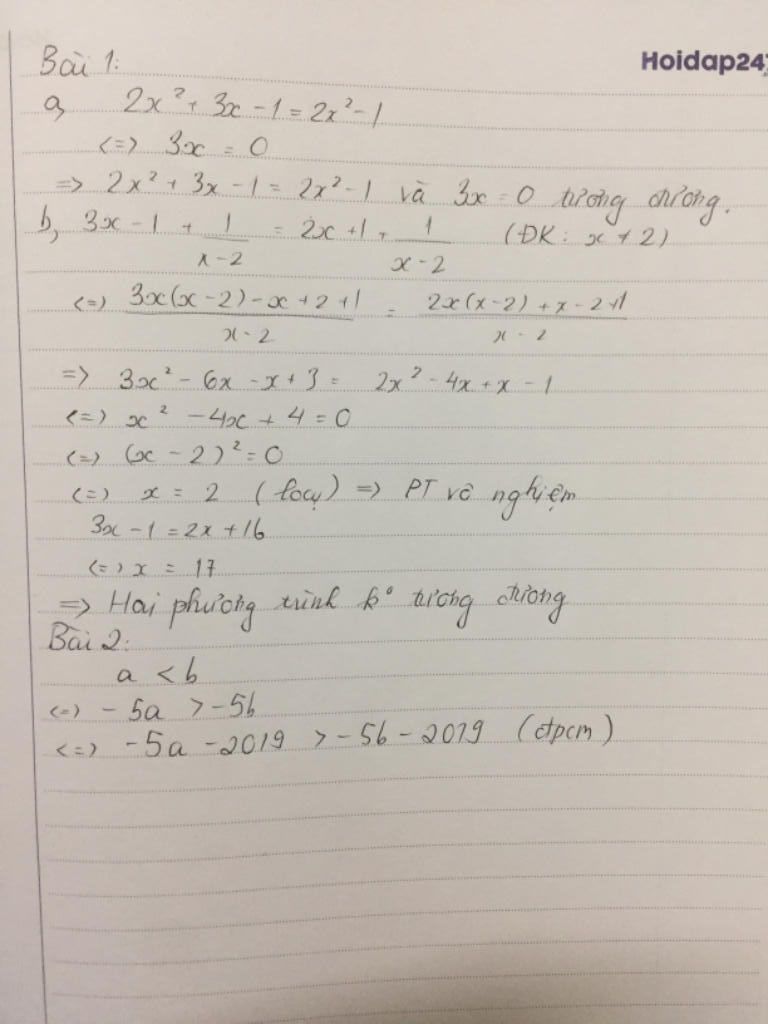 Bài 1:
Hoidap247
a, 2x² + 3x - 1 = 2x² - 1
<=> 3x = 0
=> 2x² + 3x - 1 = 2x² - 1 và 3x = 0 tương đương.
b, 3x - 1 + 1/(x - 2) = 2x + 1 + 1/(x - 2) (ĐK: x ≠ 2)
<=> (3x(x - 2) - x + 2 + 1)/(x - 2) = (2x(x - 2) + x - 2 + 1)/(x - 2)
=> 3x² - 6x - x + 3 = 2x² - 4x + x - 1
<=> x² - 4x + 4 = 0
<=> (x - 2)² = 0
<=> x = 2 (loại) => PT vô nghiệm
3x - 1 = 2x + 16
<=> x = 17
=> Hai phương trình k° tương đương
Bài 2:
a < b
<=> - 5a > -5b
<=> -5a - 2019 > -5b - 2019 (đpcm)